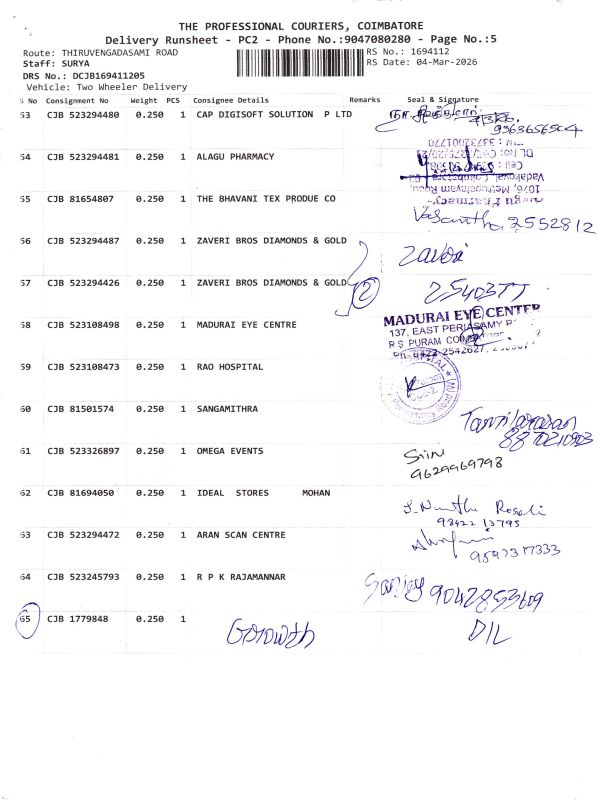 THE PROFESSIONAL COURIERS, COIMBATORE
Delivery Runsheet - PC2 - Phone No.:9047080280 - Page No.:5
Route: THIRUVENGADASAMI ROAD
RS No.: 1694112
Staff: SURYA
RS Date: 04-Mar-2026
DRS No.: DCJB169411205
Vehicle: Two Wheeler Delivery
S No Consignment No Weight PCS Consignee Details Remarks Seal & Signature
53 CJB 523294480 0.250 1 CAP DIGISOFT SOLUTION P LTD
9363656504
54 CJB 523294481 0.250 1 ALAGU PHARMACY
55 CJB 81654807 0.250 1 THE BHAVANI TEX PRODUE CO
Vasantha 2552812
56 CJB 523294487 0.250 1 ZAVERI BROS DIAMONDS & GOLD
Zaveri
57 CJB 523294426 0.250 1 ZAVERI BROS DIAMONDS & GOLD 2
58 CJB 523108498 0.250 1 MADURAI EYE CENTRE
MADURAI EYE CENTER
137, EAST PERIASAMY
R S PURAM
Ph: 0422-2542627,
59 CJB 523108473 0.250 1 RAO HOSPITAL
60 CJB 81501574 0.250 1 SANGAMITHRA
Tamilarasan
8870210903
61 CJB 523326897 0.250 1 OMEGA EVENTS
9629969798
62 CJB 81694050 0.250 1 IDEAL STORES MOHAN
98422 13795
63 CJB 523294472 0.250 1 ARAN SCAN CENTRE
64 CJB 523245793 0.250 1 R P K RAJAMANNAR
Sanjay 9042853609
65 CJB 1779848 0.250 1
Growth D/L